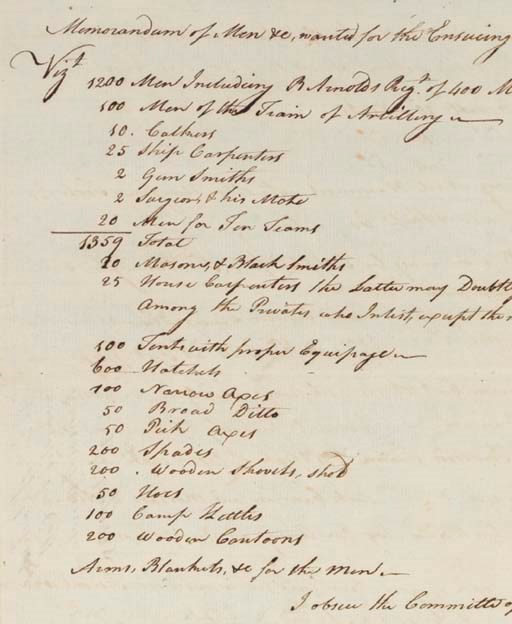 Memorandum of Men &c, wanted for the Ensueing
Vizt
1200 Men Including B Arnolds Regt. of 400 M
100 Men of the Train of Artillery
10. Calkers
25 Ship Carpenters
2 Gun Smiths
2 Surgeon, & his Mate
20 Men for Ten Teams
1359 Total
20 Masons, & Black Smiths
25 House Carpenters the Latter may Doubtl
Among the Privates who Inlist, except the
100 Tents with proper Equipage
600 Hatchets
100 Narrow Axes
50 Broad Ditto
50 Pick Axes
200 Spades
200 . Wooden Shovels, shod
50 Hoes
100 Camp Kettles
200 Wooden Cantoons
Arms, Blankets, &c for the Men
I obser the Committe of